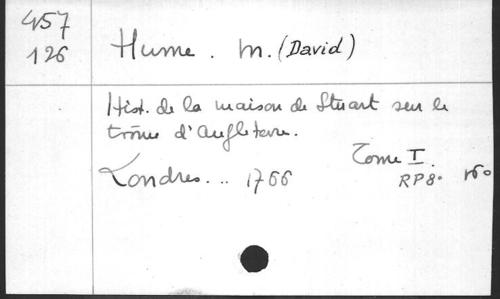 457
126
Hume. M. (David)
Hist. de la maison de Stuart sur le
trône d'Angleterre.
Tome I.
Londres... 1766
RP8° 160